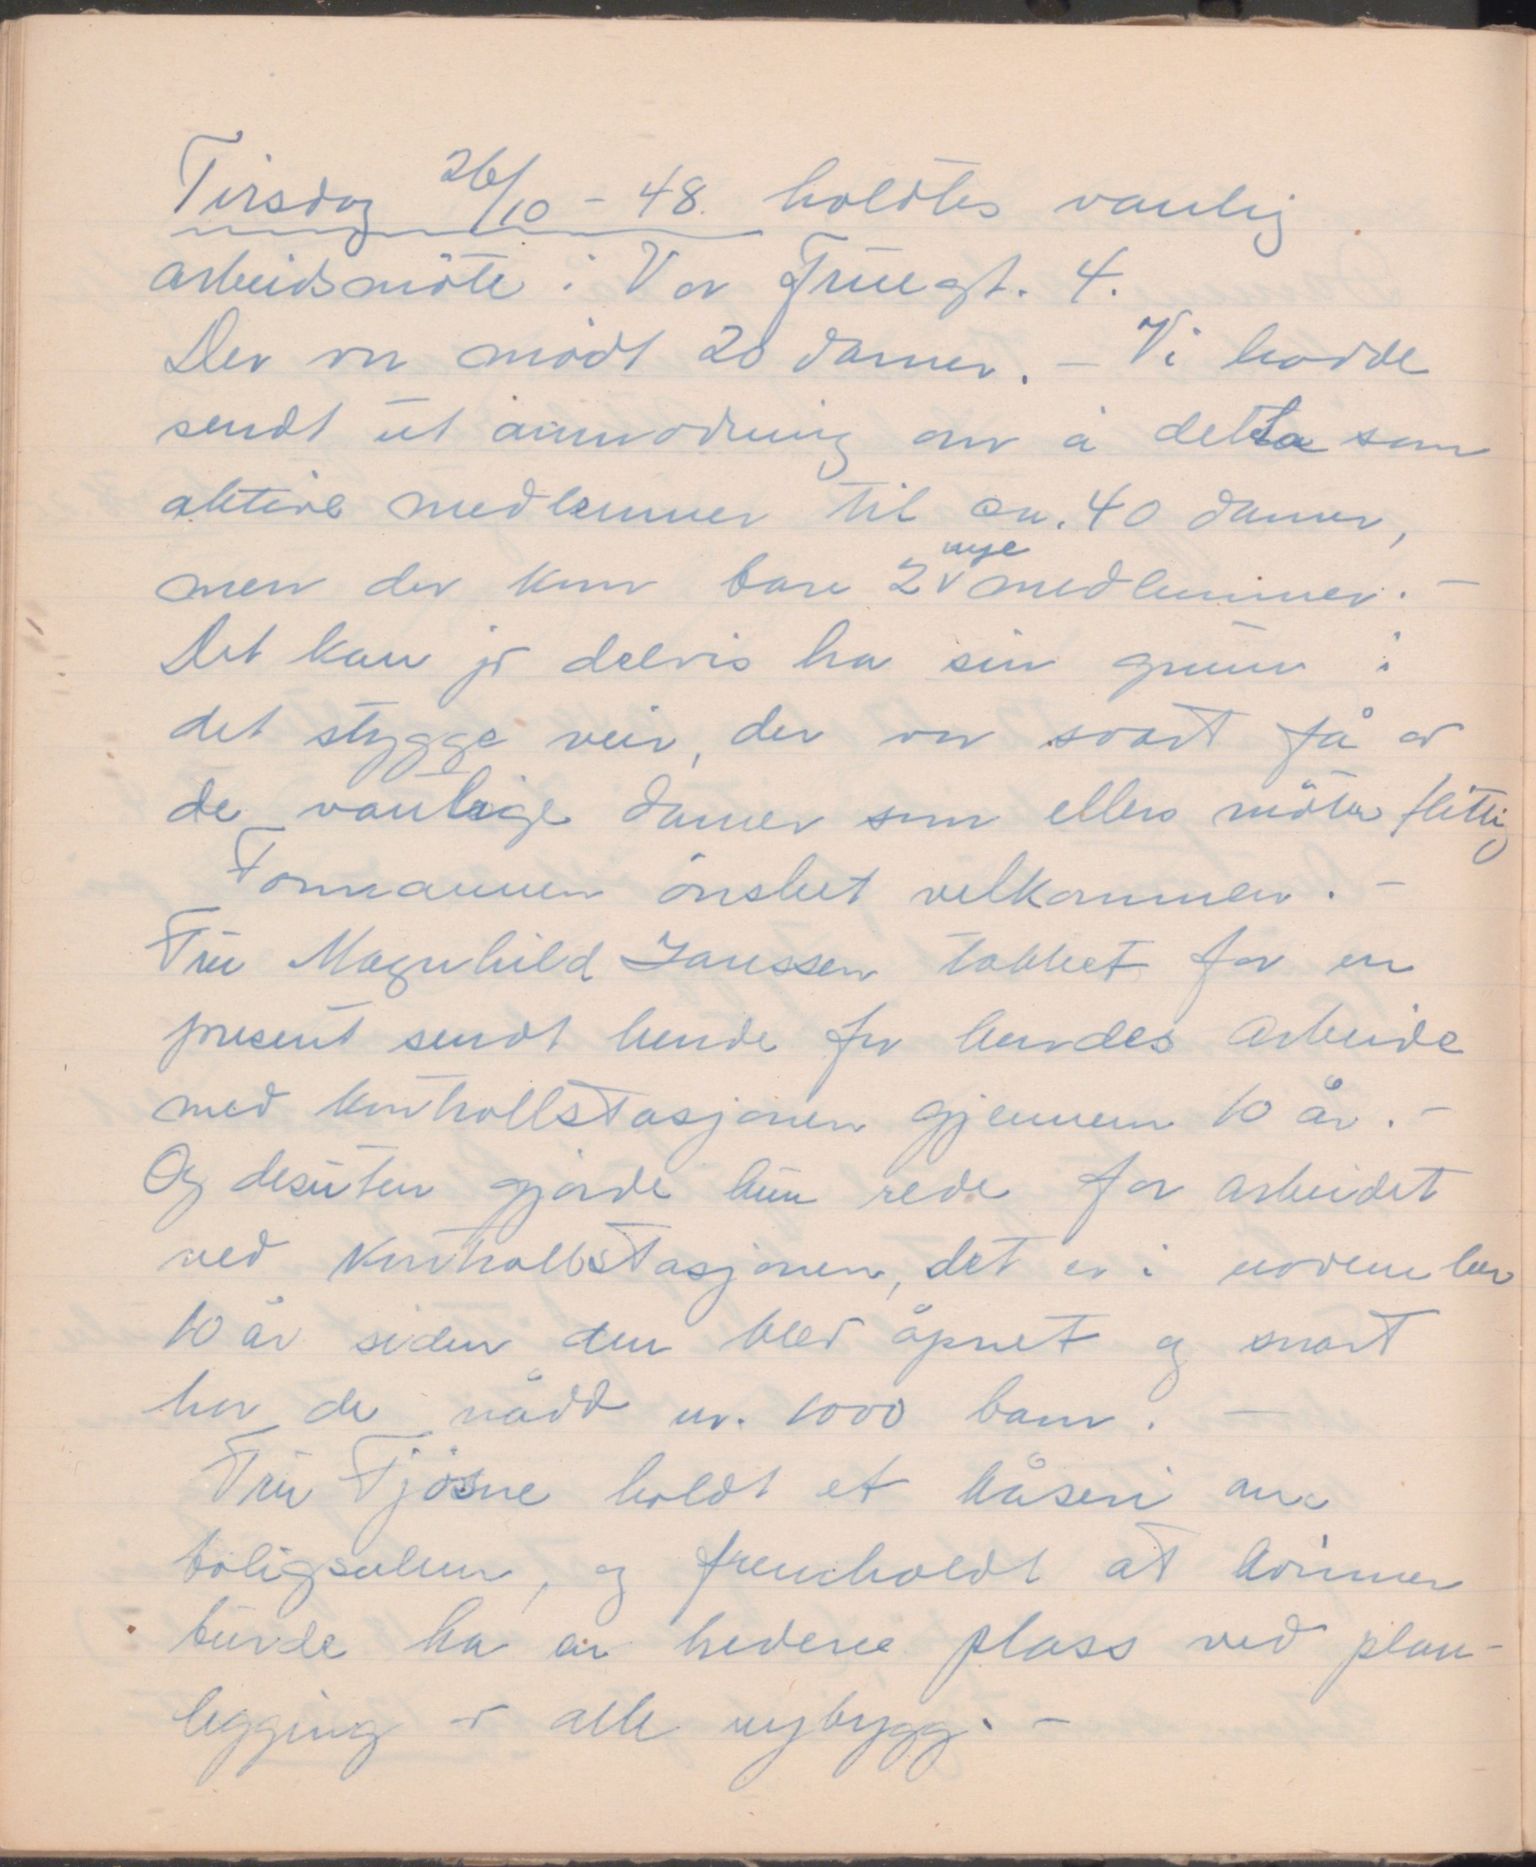 Tirsdag 26/10 - 48. holdtes vanlig
arbeidsmöte i Vor Fruegt. 4.
Der var mödt 20 damer. - Vi hadde
sendt ut anmodning om å delta som
aktive medlemmer til ca. 40 damer,
men der kom bare 2 nye medlemmer. -
Det kan jo delvis ha sin grunn i
det stygge veir, der var svært få av
de vanlige damer som ellers möter flittig
Formannen önsket velkommen. -
Fru Magnhild Janssen takket for en
present sendt hende for hendes arbeide
med kontrollstasjonen gjennem 10 år. -
Og desuten gjorde hun rede for arbeidet
ved kontrollstasjonen, det er i november
10 år siden den blev åpnet og snart
har de nådd nr. 1000 barn. -
Fru Fjösne holdt et kåseri om
boligsaken, og fremholdt at kvinner
burde ha en bredere plass ved plan-
legging av alle nybygg. -